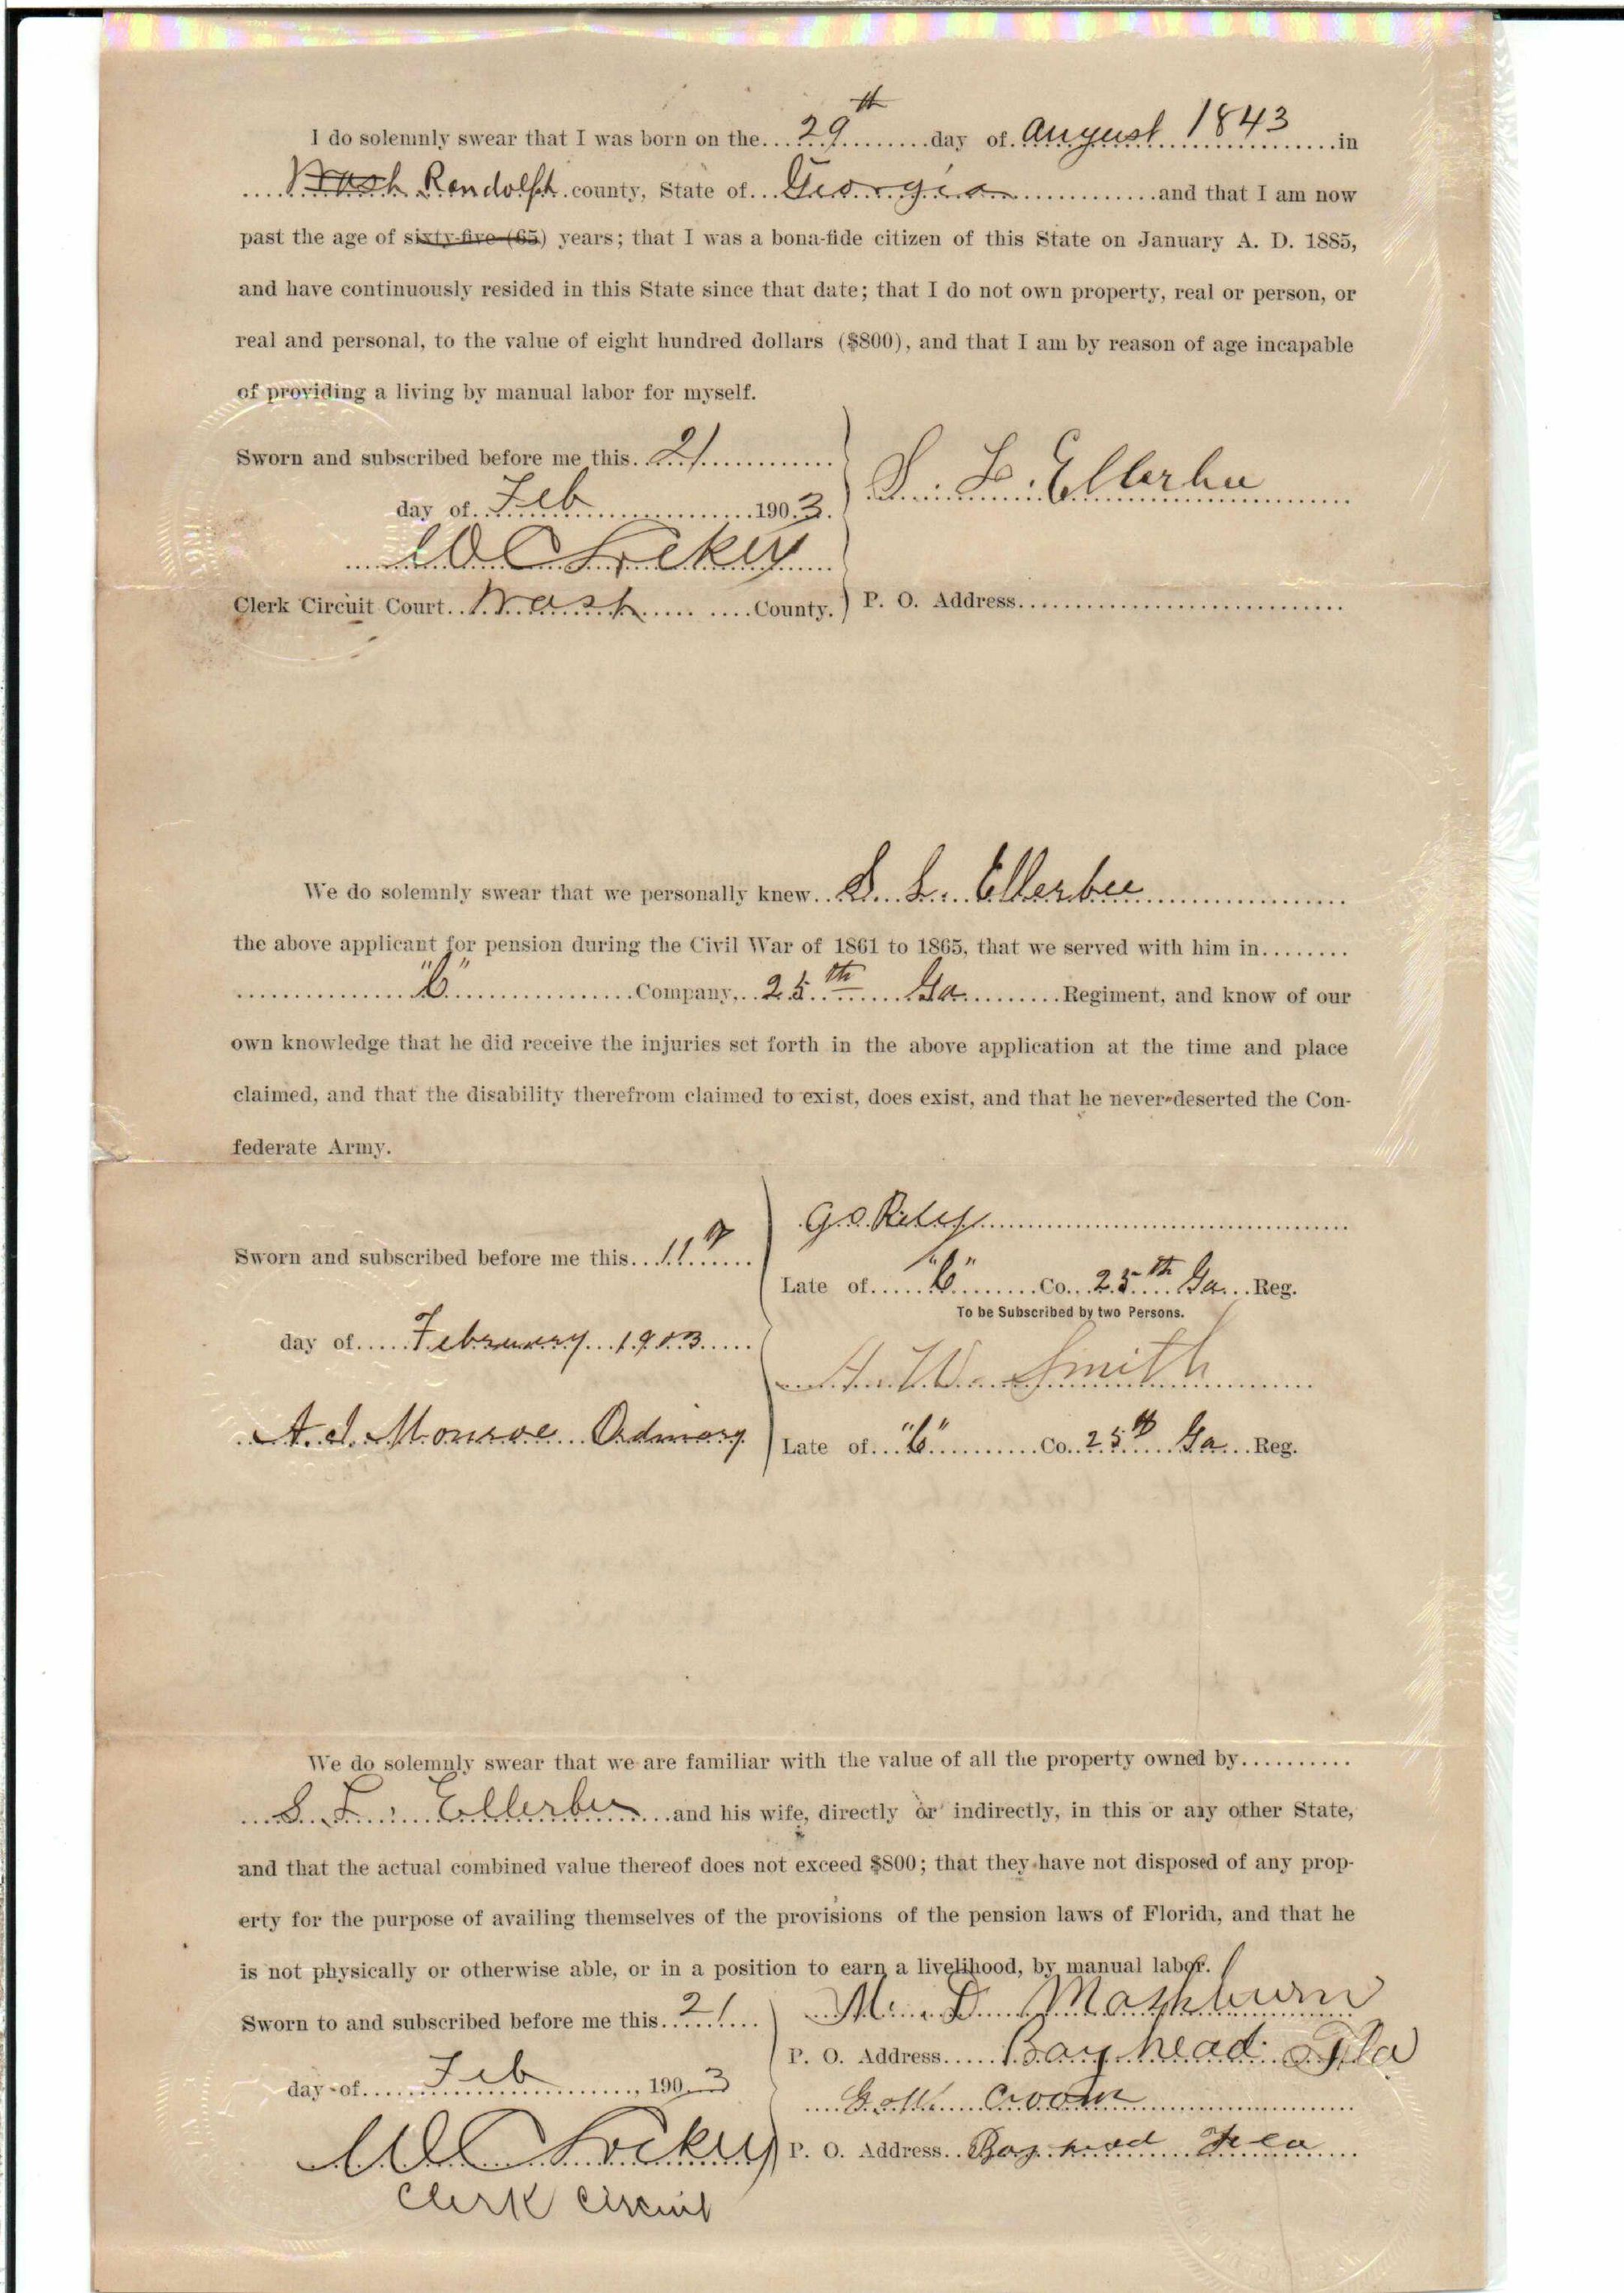 I do solemnly swear that I was born on the 29th day of August 1843 in
Wash Randolph county, State of Georgia and that I am now
past the age of sixty-five (65) years; that I was a bona-fide citizen of this State on January A. D. 1885,
and have continuously resided in this State since that date; that I do not own property, real or person, or
real and personal, to the value of eight hundred dollars ($800), and that I am by reason of age incapable
of providing a living by manual labor for myself.
Sworn and subscribed before me this 21
S. L. Ellerbee
day of Feb 1903.
W C Lockey
Clerk Circuit Court Wash County. P. O. Address
We do solemnly swear that we personally knew S. L. Ellerbee
the above applicant for pension during the Civil War of 1861 to 1865, that we served with him in
"C" Company, 25th Ga Regiment, and know of our
own knowledge that he did receive the injuries set forth in the above application at the time and place
claimed, and that the disability therefrom claimed to exist, does exist, and that he never deserted the Con-
federate Army.
G O Riley
Sworn and subscribed before me this 11
Late of "C" Co. 25th Ga Reg.
To be Subscribed by two Persons.
day of February 1903
H. W. Smith
A. J. Monroe Ordinary
Late of "C" Co. 25th Ga Reg.
We do solemnly swear that we are familiar with the value of all the property owned by
S. L. Ellerbee and his wife, directly or indirectly, in this or any other State,
and that the actual combined value thereof does not exceed $800; that they have not disposed of any prop-
erty for the purpose of availing themselves of the provisions of the pension laws of Florida, and that he
is not physically or otherwise able, or in a position to earn a livelihood, by manual labor.
Sworn to and subscribed before me this 21
M. D. Mashburn
P. O. Address Bayhead Fla
day of Feb, 1903
G. W. Croom
W C Lockey
P. O. Address Bay head Fla
Clerk Circuit